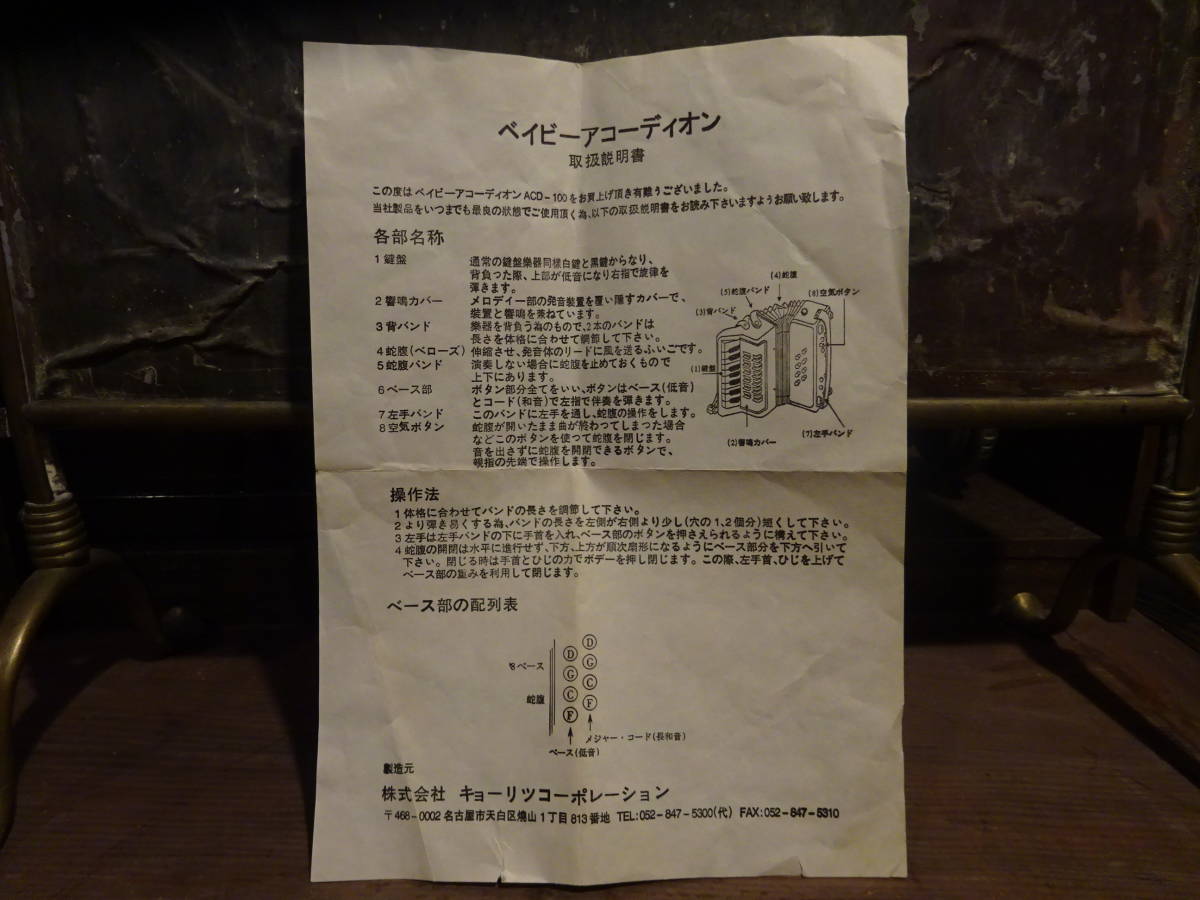 ベイビーアコーディオン
取扱説明書
この度は ベイビーアコーディオン ACD-100をお買上げ頂き有難うございました。
当社製品をいつまでも最良の状態でご使用頂く為、以下の取扱説明書をお読み下さいますようお願い致します。
各部名称
1 鍵盤 通常の鍵盤楽器同様白鍵と黒鍵からなり、
背負った際、上部が低音になり右指で旋律を
弾きます。
2 響鳴カバー メロディー部の発音装置を覆い隠すカバーで、
装置と響鳴を兼ねています。
3 背バンド 樂器を背負う為のもので、2本のバンドは
長さを体格に合わせて調節して下さい。
4 蛇腹(ベローズ) 伸縮させ、発音体のリードに風を送るふいごです。
5 蛇腹バンド 演奏しない場合に蛇腹を止めておくもので
上下にあります。
6 ベース部 ボタン部分全てをいい、ボタンはベース(低音)
とコード(和音)で左指で伴奏を弾きます。
7 左手バンド このバンドに左手を通し、蛇腹の操作をします。
8 空気ボタン 蛇腹が開いたまま曲が終わつてしまった場合
などこのボタンを使つて蛇腹を閉じます。
音を出さずに蛇腹を開閉できるボタンで、
親指の先端で操作します。
(4)蛇腹
(5)蛇腹バンド
(8)空気ボタン
(3)背バンド
(1)鍵盤
(2)響鳴カバー
(7)左手バンド
操作法
1 体格に合わせてバンドの長さを調節して下さい。
2 より弾き易くする為、バンドの長さを左側が右側より少し(穴の1、2個分)短くして下さい。
3 左手は左手バンドの下に手首を入れ、ベース部のボタンを押さえられるように構えて下さい。
4 蛇腹の開閉は水平に進行せず、下方、上方が順次扇形になるようにベース部分を下方へ引いて
下さい。閉じる時は手首とひじの力でボデーを押し閉じます。この際、左手首、ひじを上げて
ベース部の重みを利用して閉じます。
ベース部の配列表
D D
8ベース G G
C C
蛇腹 F F
メジャー・コード(長和音)
ベース(低音)
製造元
株式会社 キョーリツコーポレーション
〒468-0002 名古屋市天白区焼山1丁目813番地 TEL:052-847-5300(代) FAX:052-847-5310